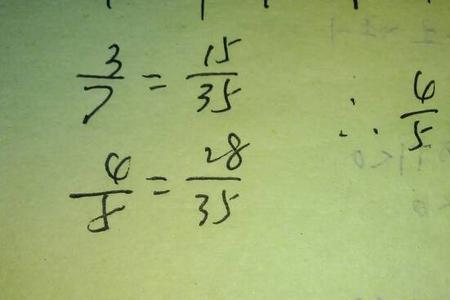 3/7 = 15/35
4/5 = 28/35
∴ 4/5